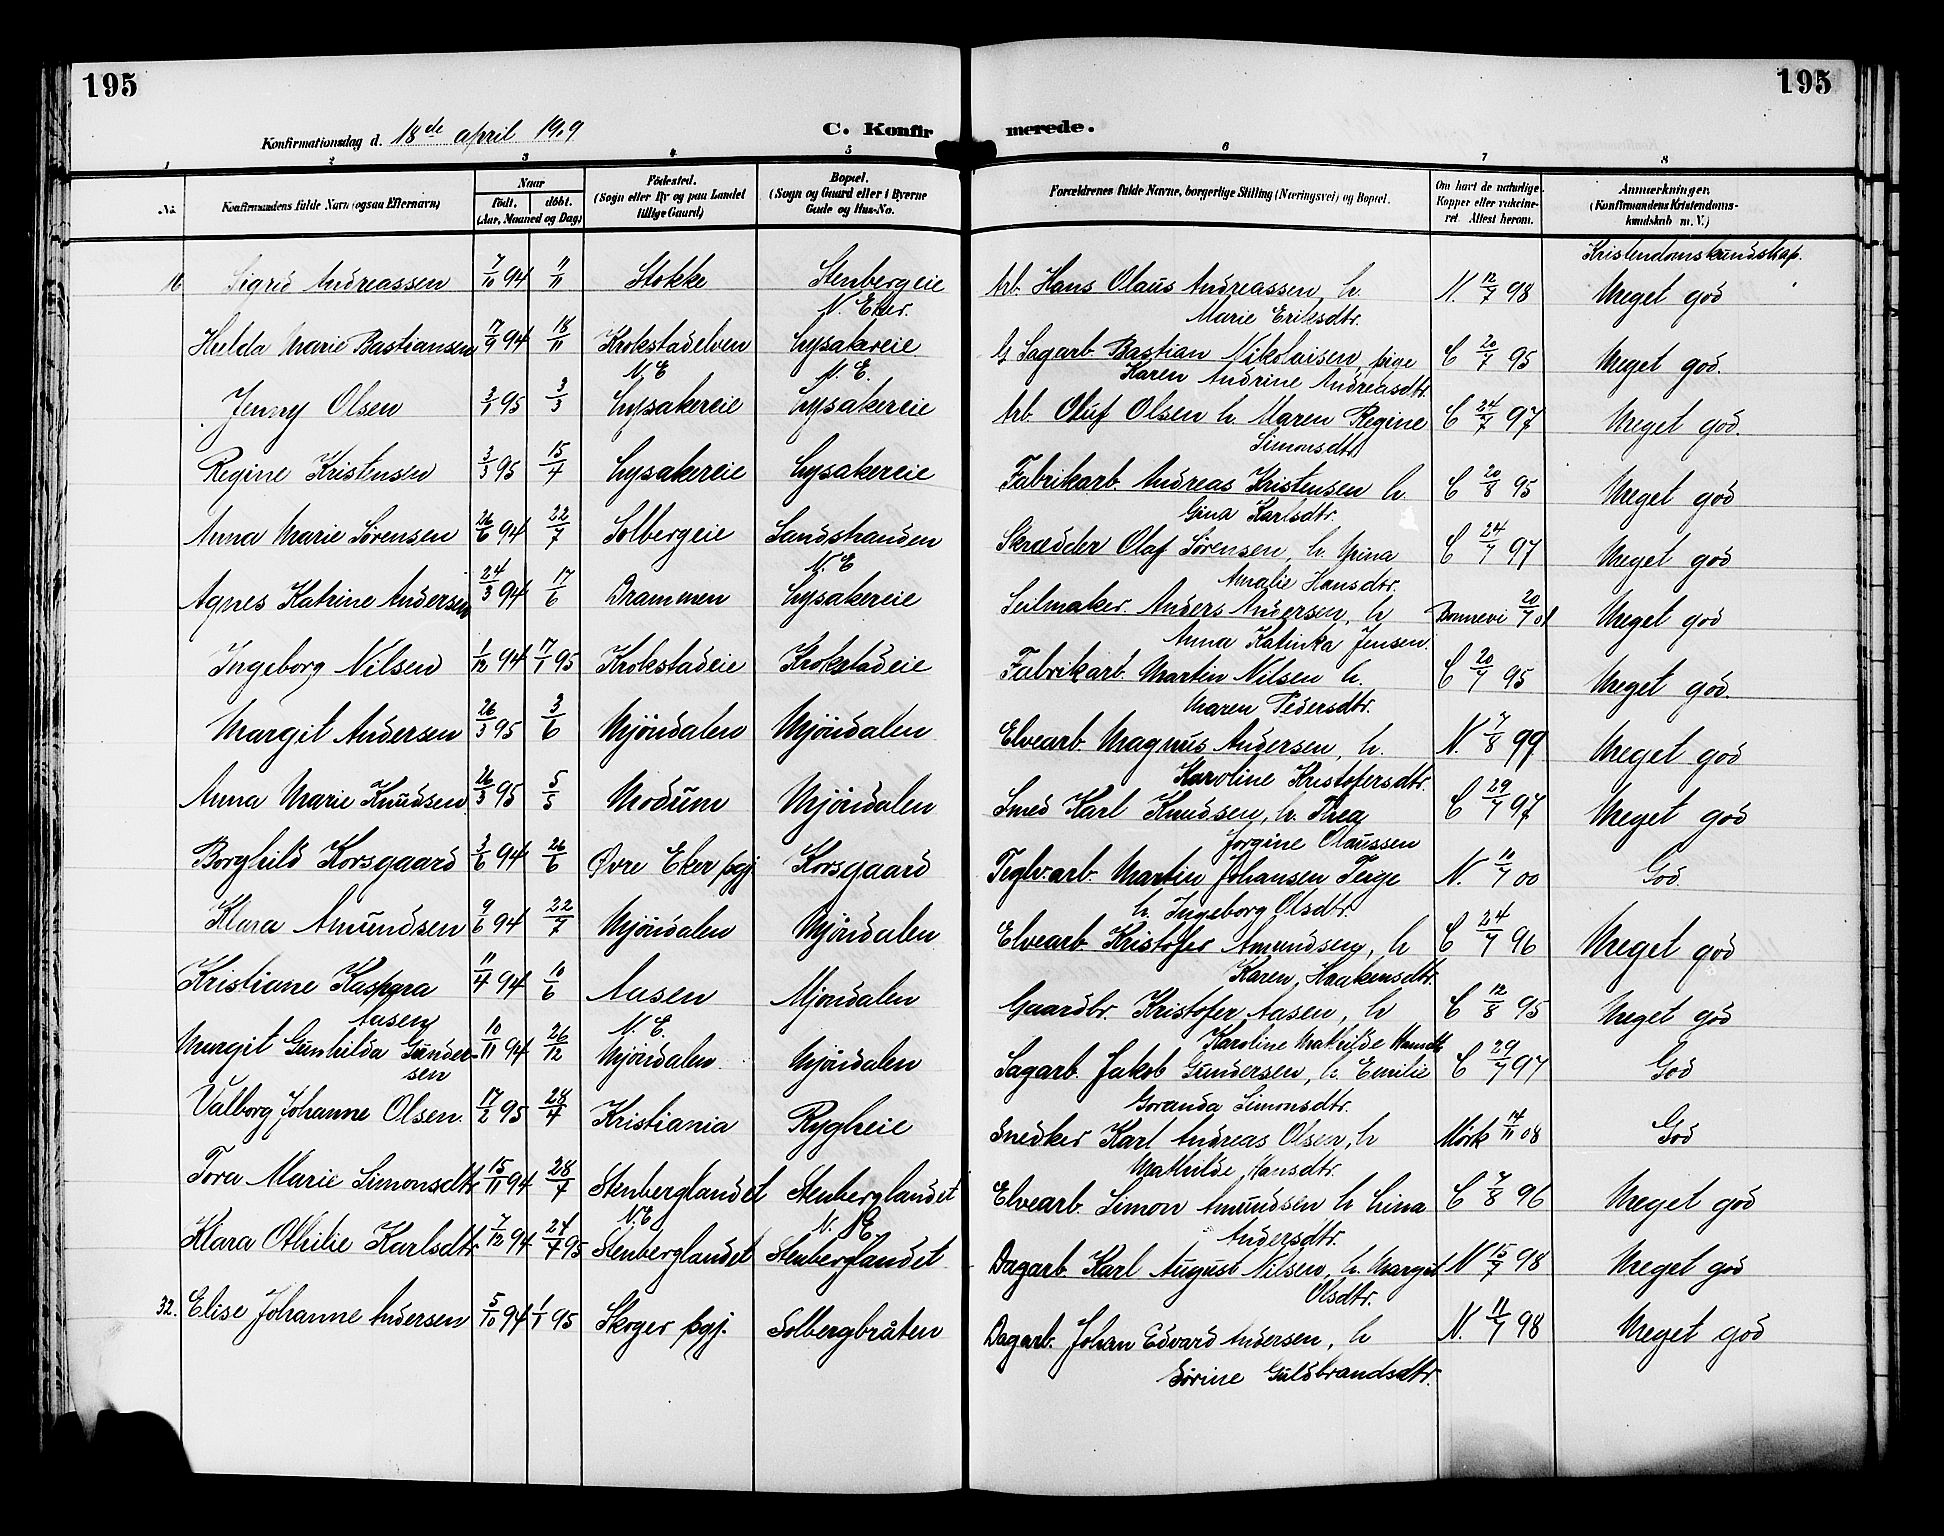 195
195
Konfirmationsdag d. 18de april 1909
C. Konfirmerede.
1 2 3 4 5 6 7 8
No.
Konfirmandens fulde Navn (ogsaa Efternavn)
Naar
født. døbt.
(Aar, Maaned og Dag)
Fødested.
(Sogn eller By og paa Landet
tillige Gaard)
Bopæl.
(Sogn og Gaard eller i Byerne
Gade og Hus-No.
Forældrenes fulde Navne, borgerlige Stilling (Næringsvei) og Bopæl.
Om havt de naturlige
Kopper eller vakcine-
ret. Attest herom.
Anmærkninger.
(Konfirmandens Kristendoms-
kundskab m. V.)
Kristendomskundskap.
16 Sigrid Andreassen 7/10 94 11/11 Stokke Stenbergeie Arb. Hans Olaus Andreassen, h. N. 12/7 98 Meget god
N. Eker. Marie Eriksdtr.
Hulda Marie Bastiansen 17/9 94 18/11 Krokstadelven Lysakereie Sagarb. Bastian Nikolaisen, pige C 20/7 95 Meget god.
N. E N. E. Karen Andrine Andreasdtr.
Jenny Olsen 3/1 95 3/3 Lysakereie Lysakereie Arb. Oluf Olsen h. Maren Regine C 24/7 97 Meget god.
Simonsdtr
Regine Kristensen 3/3 95 15/4 Lysakereie Lysakereie Fabrikarb. Andreas Kristensen h. C 20/8 95 Meget god
Gina Karlsdtr.
Anna Marie Sørensen 26/6 94 22/7 Solbergeie Sandstranden Skrædder Olaf Sørensen, h. C 24/7 97 Meget god
N. E Amalie Hansdtr.
Agnes Katrine Andersen 24/3 94 17/6 Drammen Lysakereie Seilmaker. Anders Andersen, h Bonnevi 20/7 01 Meget god
Anna Katinka Jensen.
Ingeborg Nilsen 1/12 94 17/1 95 Krokstadeie Krokstadeie Fabrikarb. Martin Nilsen h. C 20/7 95 Meget god.
Maren Pedersdtr.
Margit Andersen 26/3 95 3/6 Mjöndalen Mjöndalen Elvearb. Magnus Andersen, h. N. 7/8 99 Meget god
Karoline Kristofersdtr.
Anna Marie Knudsen 26/3 95 5/5 Modum Mjöndalen Smed Karl Knudsen, h. Thea C 29/7 97 Meget god
Jorgine Olaussen
Borghild Korsgaard 3/6 94 26/6 Øvre Eker pgj. Korsgaard Teglv.arb. Martin Johansen Teige N. 10/7 00 God
h. Ingeborg Olsdtr.
Klara Amundsen 9/6 94 22/7 Mjöndalen Mjöndalen Elvearb. Kristofer Amundsen, h C 24/7 96 Meget god
Karen Haakensdtr.
Kristiane Kaspara 11/4 94 10/6 Aasen Mjöndalen Gaardbr Kristofer Aasen, h C 12/8 95 Meget god
Aasen N. E. Karoline Mathilde
Margit Gunhilda Gunder- 10/11 94 26/12 Mjöndalen. Mjöndalen Sagarb. Jakob Gundersen, h. Emilie C 29/7 97 God
sen Goranda Simonsdtr.
Valborg Johanne Olsen. 17/2 95 28/4 Kristiania Rygheie Snedker Karl Andreas Olsen, h Mørk 14/11 08 God
Mathilde Hansdtr.
Tora Marie Simonsdtr 15/11 94 28/7 Stenberglandet Stenberglandet Elvearb. Simon Amundsen h Lina C 7/8 96 Meget god
N. E N. E. Andersdtr.
Klara Othilie Karlsdtr 7/12 94 21/7 95 Stenberglandet Stenberglandet Dagarb. Karl August Nilsen, h. Margit N 15/7 98 Meget god
Olsdtr.
32. Elise Johanne Andersen 5/10 94 1/1 95 Skoger pgj. Solbergbråten Dagarb. Johan Edvard Andersen, h N. 11/7 98 Meget god
Sørine Guldbrandsdtr.